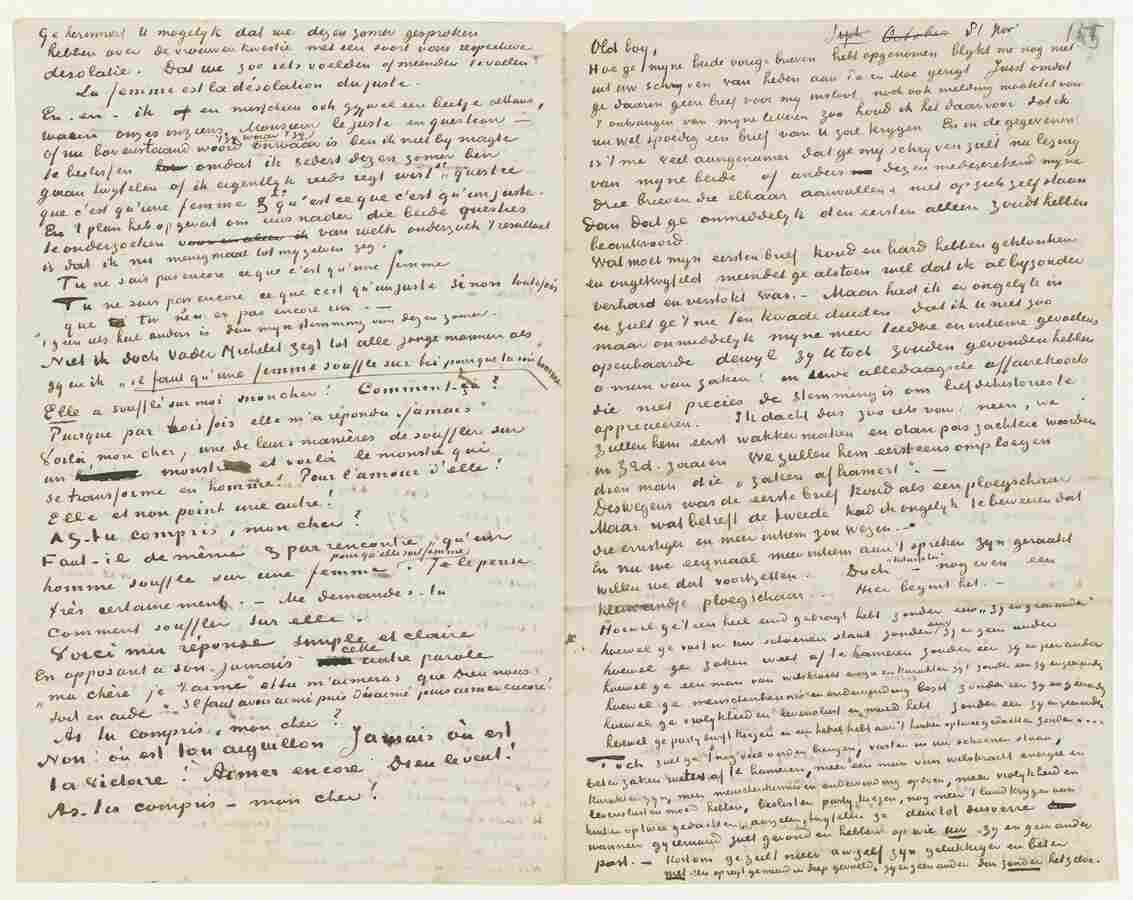 Ge herinnert U mogelyk dat we dezen zomer gesproken
hebben over de vrouwenkwestie met een soort van
desolatie. Dat we zoo iets voelden of meenden te voelen:
La femme est la désolation du juste.
En - en - ik en misschien ook gy wel een beetje althans,
waren onzes inziens, Monsieur le juste en question —
of nu bovenstaand woord waar zy onwaar zy is ben ik niet by magte
te beslissen omdat ik sedert dezen zomer ben
gaan twyfelen of ik eigentlyk reeds regt wist "qu'est ce
que c'est qu'une femme & qu'est ce que c'est qu'un juste.
En 't plan heb opgevat om eens nader die beide questies
te onderzoeken van welk onderzoek 't resultaat
is dat ik nu menigmaal tot my zelven zeg.
Tu ne sais pas encore ce que c'est qu'une femme
Tu ne sais pas encore ce que c'est qu'un juste si non toutefois
que tu n'en es pas encore un. —
't geen wel heel anders is dan myn stemming van dezen zomer.
Niet ik doch Vader Michelet zegt tot alle jonge mannen als
gy en ik "il faut qu'une femme souffle sur toi pour que tu sois homme
Elle a soufflé sur moi mon cher! Comment-ça?
Puisque par trois fois elle m'a répondu "jamais"
Voilà, mon cher, une de leurs manières de souffler sur
un monstre et voilà le monstre qui
se transforme en homme! Pour l'amour d'elle!
Elle et non point une autre!
As-tu compris, mon cher?
Faut-il de même & par rencontre, qu'un
homme souffle sur une femme pour qu'elle soit femme? Je le pense
très certainement. — Me demandes-tu
comment souffler sur elle.
Voici ma réponse simple et claire
En opposant a son "jamais" cette autre parole
"ma chère je t'aime" et tu m'aimeras que Dieu nous
soit en aide". Il faut avoir aimé puis désaimé puis aimer encore!
As tu compris, mon cher?
Non! où est ton aiguillon Jamais où est
ta victoire! Aimer encore Dieu le veut!
As-tu compris — mon cher!
Sept October 81 Nov
Old boy,
Hoe ge myne beide vorige brieven hebt opgenomen blykt me nog niet
uit uw schryven van heden aan Pa en Moe gerigt. Juist omdat
ge daarin geen brief voor my insloot, noch ook melding maaktet van
't ontvangen van myne letteren zoo houd ik het daarvoor dat ik
nu wel spoedig een brief van U zal krygen. En in de gegevenen
is 't me veel aangenamer dat ge my schryven zult na lezing
van myne beide of anders dezen medegerekend myne
drie brieven die elkaar aanvullen & niet op zich zelf staan
Dan dat ge onmiddelyk den eersten alleen zoudt hebben
beantwoord.
Wat moet myn eersten brief koud en hard hebben geklonken
en ongetwyfeld meendet ge alstoen wel dat ik al byzonder
verhard en verstokt was. — Maar had ik er ongelyk in
en zult ge 't me ten kwade duiden dat ik U niet zoo
maar onmiddelyk myne meer teedere en intieme gevoelens
openbaarde dewyl zy U toch zouden gevonden hebben
o man van zaken! in uwe alledaagsche affairekoorts
die niet precies de stemming is om liefdehistories te
apprecieeren. Ik dacht dus zoo iets van: neen, we
zullen hem eerst wakker maken en dan pas zachtere woorden
in z'n hd. zaaien We zullen hem eerst eens omploegen
dien man die "zaken afhamert". —
Deswegens was de eerste brief koud als een ploegschaar
Maar wat betreft de tweede had ik ongelyk te beweeren dat
die ernstiger en meer intiem zou wezen. —
En nu we eenmaal meer intiem aan 't spreken zyn geraakt
willen we dat voortzetten. Doch — nog even een
kleinandje ploegschaar. — Hier begint het. —
Hoewel ge 't een heel eind gebragt hebt zonder een "zy en geen ander"
hoewel ge vast in uw schoenen staat zonder eene zy en geen ander
hoewel ge zaken weet af te hameren zonder een zy en geen ander
hoewel ge een man van wilskracht energie en karakter zyt zonder een zy en geen ander
hoewel ge menschenkennis en ondervinding bezit zonder een zy en geen ander
hoewel ge vrolykheid en levenslust en moed hebt zonder een zy en geen ander
hoewel ge party durft kiezen en een hekel hebt aan 't hinken op twee gedachten zonder....
Toch zult ge 't nog veel verder brengen, vaster in uw schoenen staan,
beter zaken weten af te hameren, meer een man van wilskracht energie en
karakter zyn, meer menschenkennis en ondervinding opdoen, meer vrolykheid en
levenslust en moed hebben, beslister party kiezen, nog meer 't land krygen aan
hinken op twee gedachten, aarzelen, twyfelen &c den tot dusverre
wanneer gy iemand zult gevonden hebben op wie uw zy en geen ander
past. — Kortom ge zult meer uwzelf zyn gelukkiger en beter
met een opregt gemeend en diep gevoeld, zy en geen ander dan zonder hetzelve.